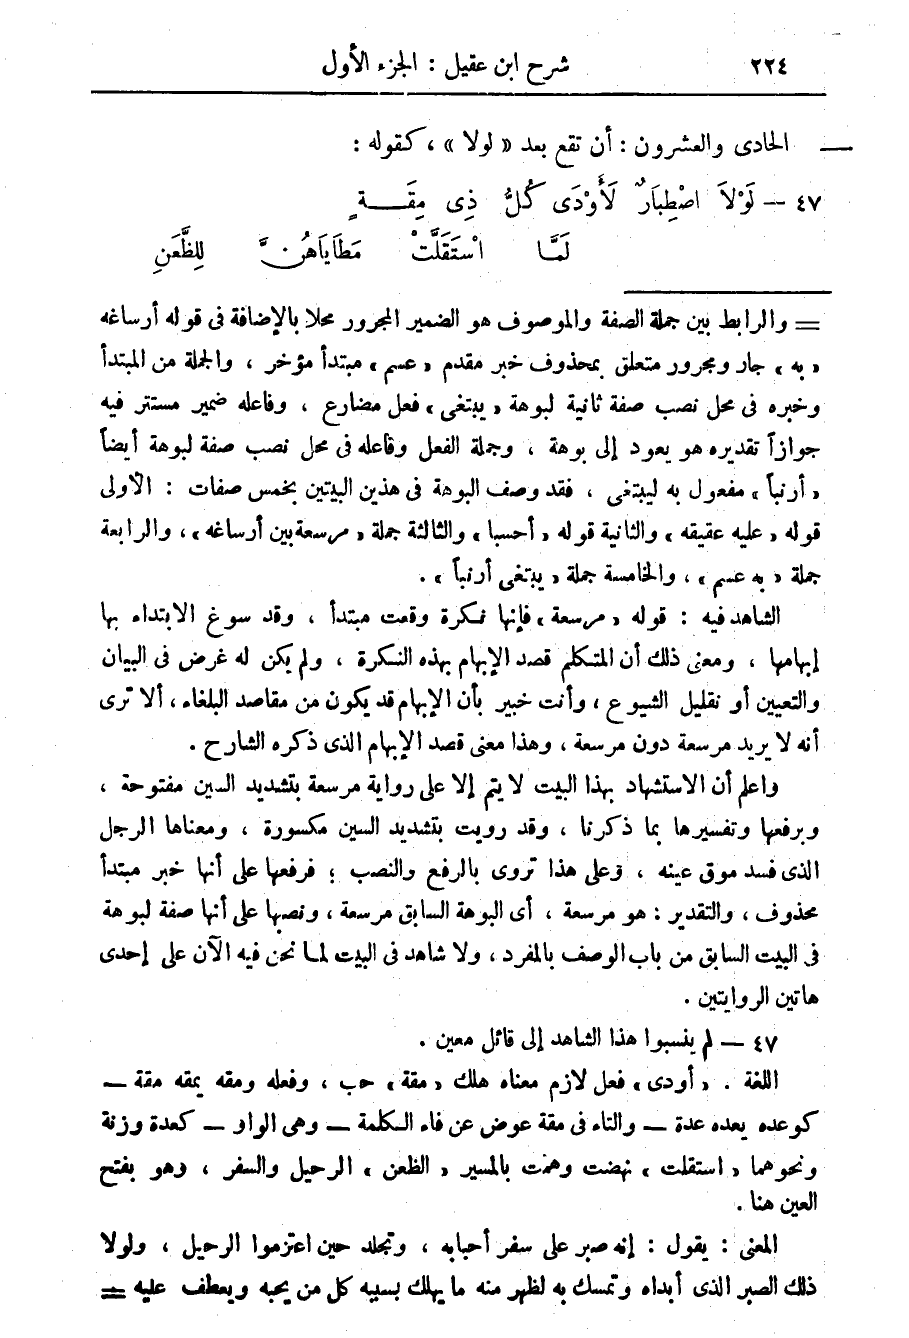 ٢٢٤ شرح ابن عقيل : الجزء الأول
— الحادى والعشرون : أن تقع بعد « لولا » ، كقوله :
٤٧ — لَوْلاَ اصْطِبَارٌ لَأَوْدَى كُلُّ ذِى مِقَـــةٍ
لَمَّا اسْتَقَلَّتْ مَطَايَاهُنَّ لِلظَّعَنِ
= والرابط بين جملة الصفة والموصوف هو الضمير المجرور محلا بالإضافة فى قوله أرساغه
« به » جار ومجرور متعلق بمحذوف خبر مقدم « عسم » مبتدأ مؤخر ، والجملة من المبتدأ
وخبره فى محل نصب صفة ثانية لبوهة « يبتغى » فعل مضارع ، وفاعله ضمير مستتر فيه
جوازاً تقديره هو يعود إلى بوهة ، وجملة الفعل وفاعله فى محل نصب صفة لبوهة أيضاً
« أرنباً » مفعول به ليبتغى ، فقد وصف البوهة فى هذين البيتين بخمس صفات : الأولى
قوله « عليه عقيقه » والثانية قوله « أحسبا » والثالثة جملة « مرسعة بين أرساغه » ، والرابعة
جملة « به عسم » ، والخامسة جملة « يبتغى أرنباً » .
الشاهد فيه : قوله « مرسعة » فإنها نكرة وقعت مبتدأ ، وقد سوغ الابتداء بها
إبهامها ، ومعنى ذلك أن المتكلم قصد الإبهام بهذه النكرة ، ولم يكن له غرض فى البيان
والتعيين أو تقليل الشيوع ، وأنت خبير بأن الإبهام قد يكون من مقاصد البلغاء ، ألا ترى
أنه لا يريد مرسعة دون مرسعة ، وهذا معنى قصد الإبهام الذى ذكره الشارح .
واعلم أن الاستشهاد بهذا البيت لا يتم إلا على رواية مرسعة بتشديد السين مفتوحة ،
وبرفعها وتفسيرها بما ذكرنا ، وقد رويت بتشديد السين مكسورة ، ومعناها الرجل
الذى فسد موق عينه ، وعلى هذا تروى بالرفع والنصب ؛ فرفعها على أنها خبر مبتدأ
محذوف ، والتقدير : هو مرسعة ، أى البوهة السابق مرسعة ، ونصبها على أنها صفة لبوهة
فى البيت السابق من باب الوصف بالمفرد ، ولا شاهد فى البيت لما نحن فيه الآن على إحدى
هاتين الروايتين .
٤٧ — لم ينسبوا هذا الشاهد إلى قائل معين .
اللغة . « أودى » فعل لازم معناه هلك « مقة » حب ، وفعله ومقه يمقه مقة —
كوعده يعده عدة — والتاء فى مقة عوض عن فاء الكلمة — وهى الواو — كعدة وزنة
ونحوهما « استقلت » نهضت وهمت بالمسير « الظعن » الرحيل والسفر ، وهو بفتح
العين هنا .
المعنى : يقول : إنه صبر على سفر أحبابه ، وتجلد حين اعتزموا الرحيل ، ولولا
ذلك الصبر الذى أبداه وتمسك به لظهر منه ما يهلك بسببه كل من يحبه ويعطف عليه =